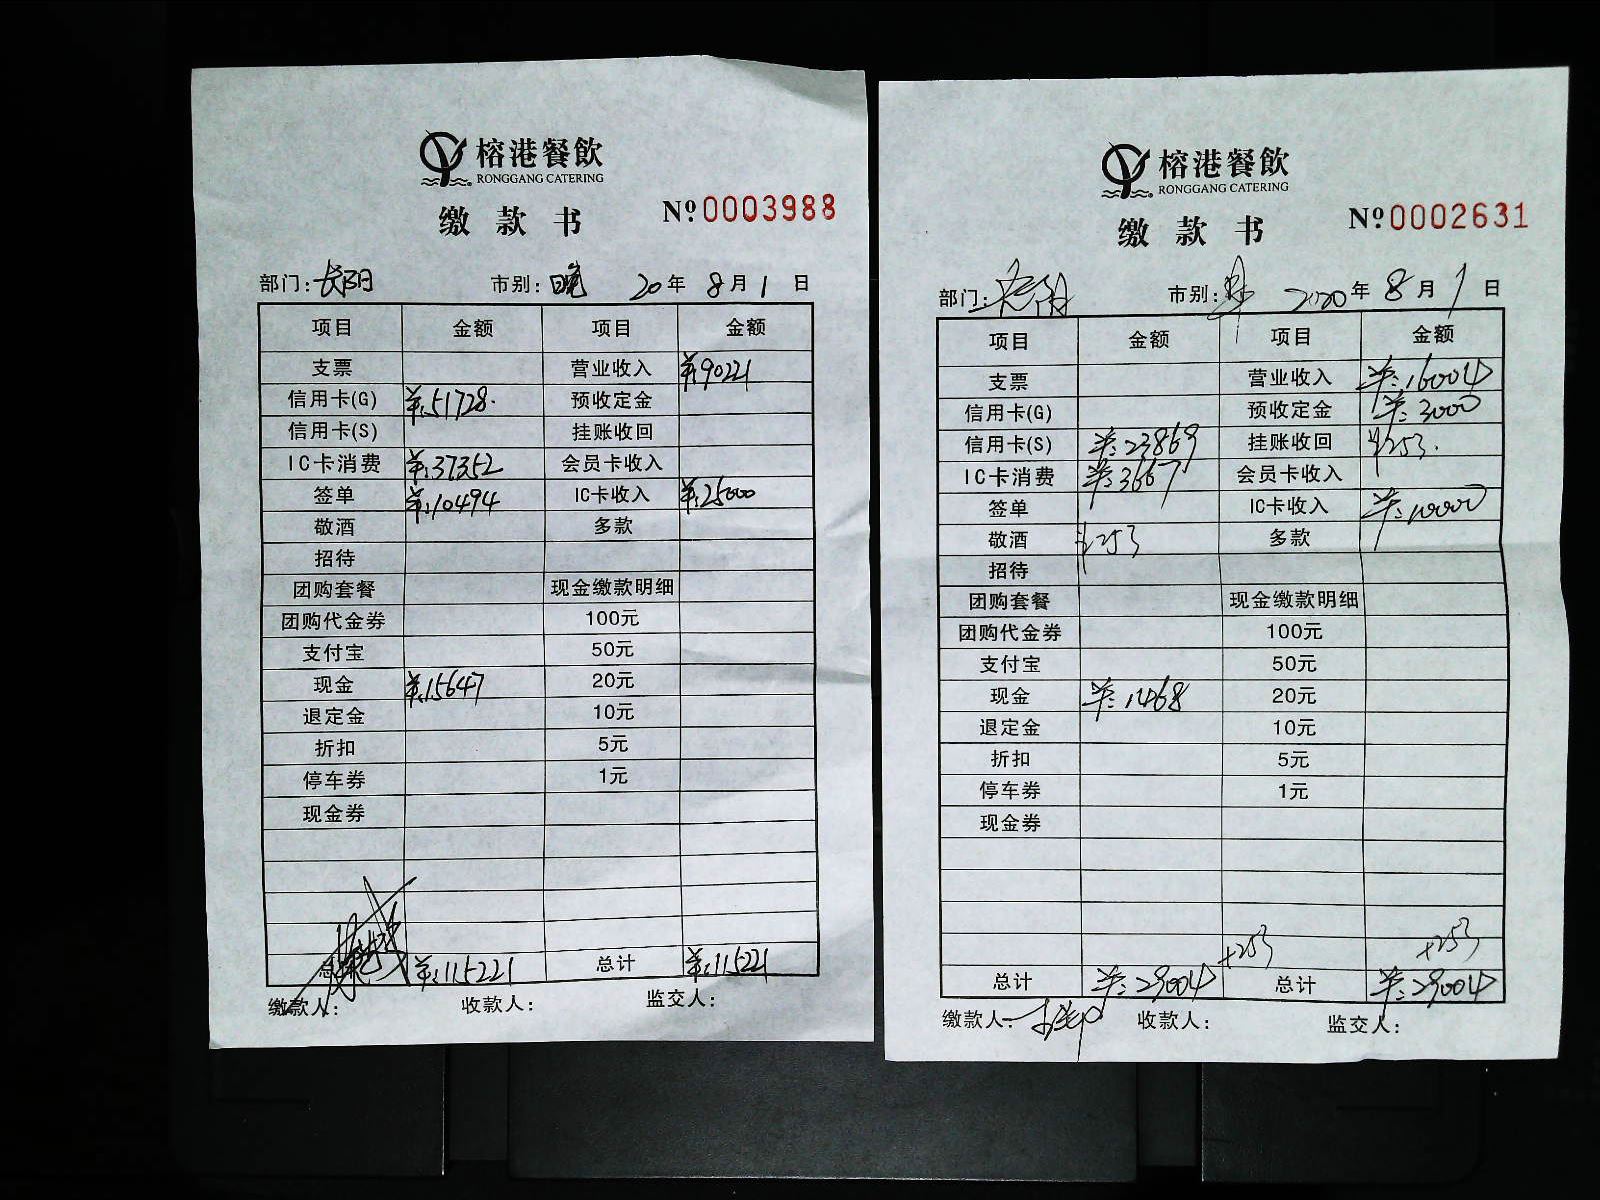 榕港餐飲
RONGGANG CATERING
缴款书
Nº 0003988
部门: 长阳 市别: 晚 20年 8月 1日
项目 金额 项目 金额
支票 营业收入 ¥:90221
信用卡(G) ¥:51728. 预收定金
信用卡(S) 挂账收回
IC卡消费 ¥:37352 会员卡收入
签单 ¥:10494 IC卡收入 ¥:25000
敬酒 多款
招待
团购套餐 现金缴款明细
团购代金券 100元
支付宝 50元
现金 ¥:15647 20元
退定金 10元
折扣 5元
停车券 1元
现金券
总计 ¥:115221 总计 ¥:115221
缴款人: 收款人: 监交人:
榕港餐飲
RONGGANG CATERING
缴款书
Nº 0002631
部门: 市别: 2020年 8月 1日
项目 金额 项目 金额
支票 营业收入 ¥:16004
信用卡(G) 预收定金 ¥:3000
信用卡(S) ¥:23869 挂账收回 ¥253.
IC卡消费 ¥:3667 会员卡收入
签单 IC卡收入 ¥:10000
敬酒 ¥253 多款
招待
团购套餐 现金缴款明细
团购代金券 100元
支付宝 50元
现金 ¥:1468 20元
退定金 10元
折扣 5元
停车券 1元
现金券
+253 +253
总计 ¥:29004 总计 ¥:29004
缴款人: 收款人: 监交人: